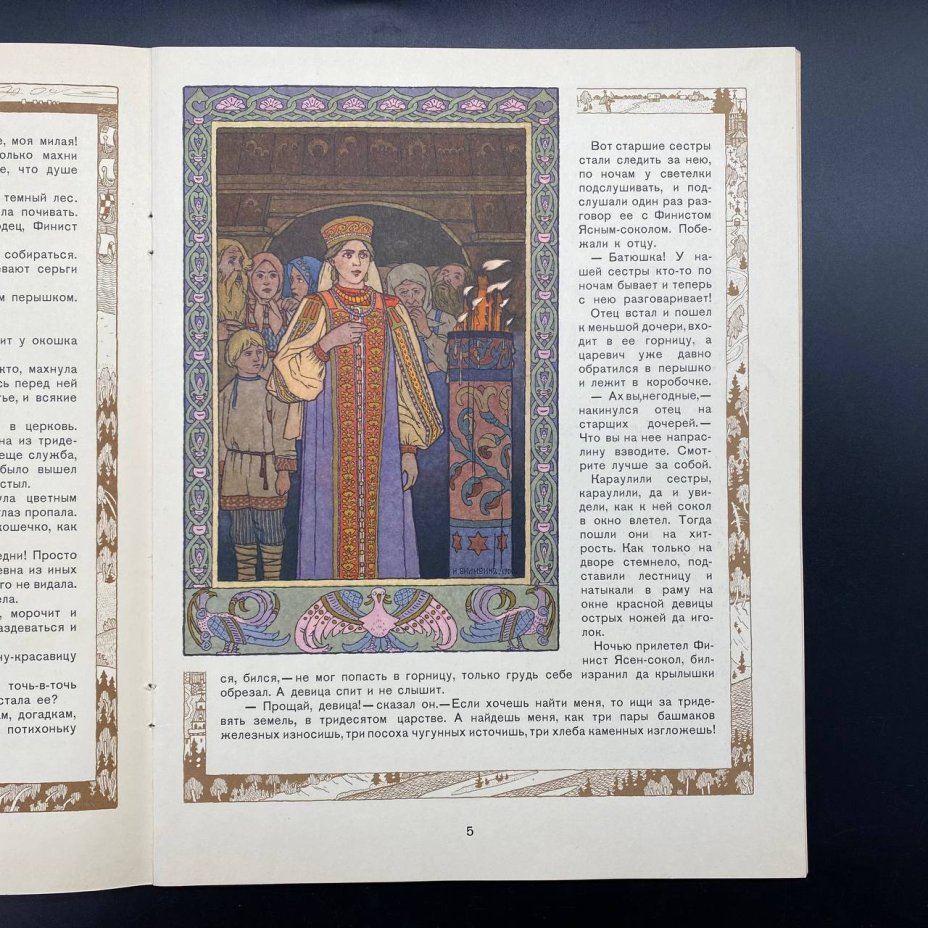 е, моя милая!
олько махни
е, что душе
темный лес.
ла почивать.
одец, Финист
собираться.
евают серьги
м перышком.
ит у окошка
кто, махнула
сь перед ней
тье, и всякие
в церковь.
на из триде-
еще служба,
было вышел
стыл.
ула цветным
глаз пропала.
кошечко, как
едни! Просто
евна из иных
го не видала.
ела.
, морочит и
аздеваться и
ну-красавицу
точь-в-точь
стала ее?
ам, догадкам,
потихоньку
Вот старшие сестры
стали следить за нею,
по ночам у светелки
подслушивать, и под-
слушали один раз раз-
говор ее с Финистом
Ясным-соколом. Побе-
жали к отцу.
— Батюшка! У на-
шей сестры кто-то по
ночам бывает и теперь
с нею разговаривает!
Отец встал и пошел
к меньшой дочери, вхо-
дит в ее горницу, а
царевич уже давно
обратился в перышко
и лежит в коробочке.
— Ах вы, негодные, —
накинулся отец на
старших дочерей. —
Что вы на нее напрас-
лину взводите. Смот-
рите лучше за собой.
Караулили сестры,
караулили, да и уви-
дели, как к ней сокол
в окно влетел. Тогда
пошли они на хит-
рость. Как только на
дворе стемнело, под-
ставили лестницу и
натыкали в раму на
окне красной девицы
острых ножей да иго-
лок.
Ночью прилетел Фи-
нист Ясен-сокол, бил-
ся, бился, — не мог попасть в горницу, только грудь себе изранил да крылышки
обрезал. А девица спит и не слышит.
— Прощай, девица! — сказал он. — Если хочешь найти меня, то ищи за триде-
вять земель, в тридесятом царстве. А найдешь меня, как три пары башмаков
железных износишь, три посоха чугунных источишь, три хлеба каменных изгложешь!
5